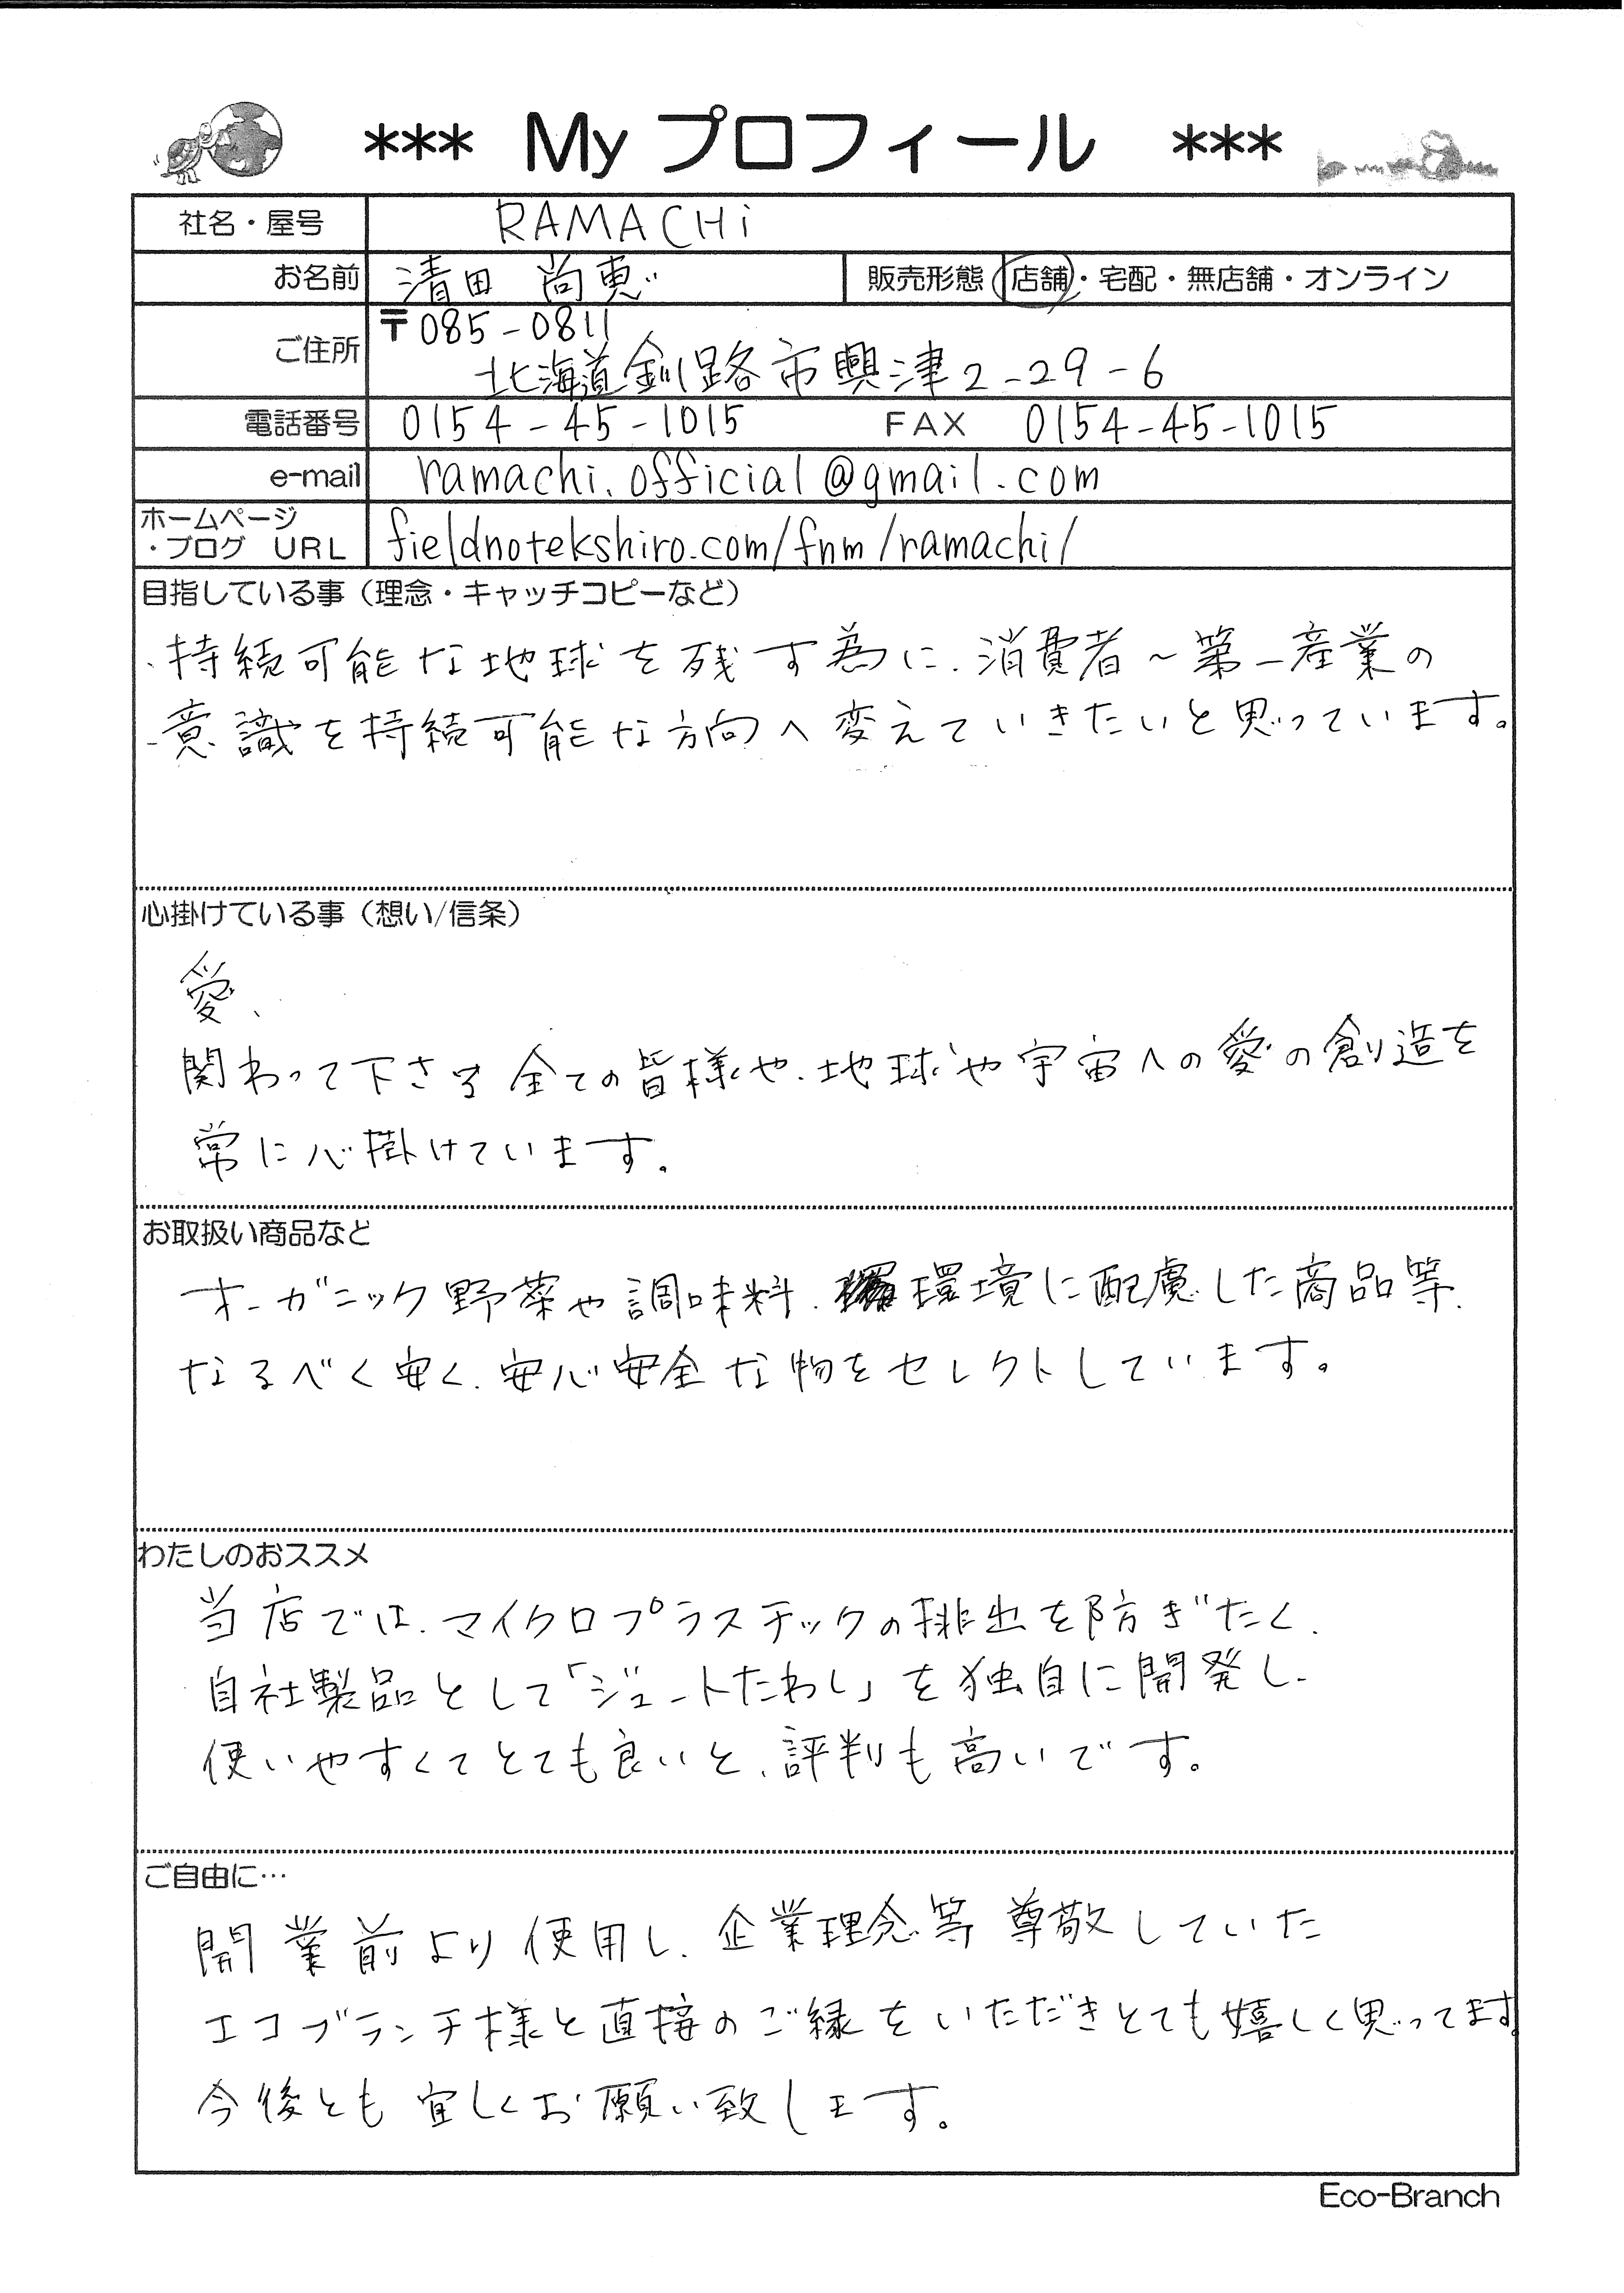 *** My プロフィール ***
社名・屋号 RAMACHi
お名前 清田 尚恵 販売形態 店舗・宅配・無店舗・オンライン
ご住所 〒085-0811
北海道釧路市興津2-29-6
電話番号 0154-45-1015 FAX 0154-45-1015
e-mail ramachi.official@gmail.com
ホームページ
・ブログ URL fieldnotekshiro.com/fnm/ramachi/
目指している事（理念・キャッチコピーなど）
持続可能な地球を残す為に、消費者～第一産業の
意識を持続可能な方向へ変えていきたいと思っています。
心掛けている事（想い/信条）
愛、
関わって下さる全ての皆様や、地球や宇宙への愛の創造を
常に心掛けています。
お取扱い商品など
オーガニック野菜や調味料、環境に配慮した商品等、
なるべく安く、安心安全な物をセレクトしています。
わたしのおススメ
当店では、マイクロプラスチックの排出を防ぎたく、
自社製品として「ジュートたわし」を独自に開発し、
使いやすくてとても良いと、評判も高いです。
ご自由に…
開業前より使用し、企業理念等尊敬していた
エコブランチ様と直接のご縁をいただきとても嬉しく思ってます。
今後とも宜しくお願い致します。
Eco-Branch